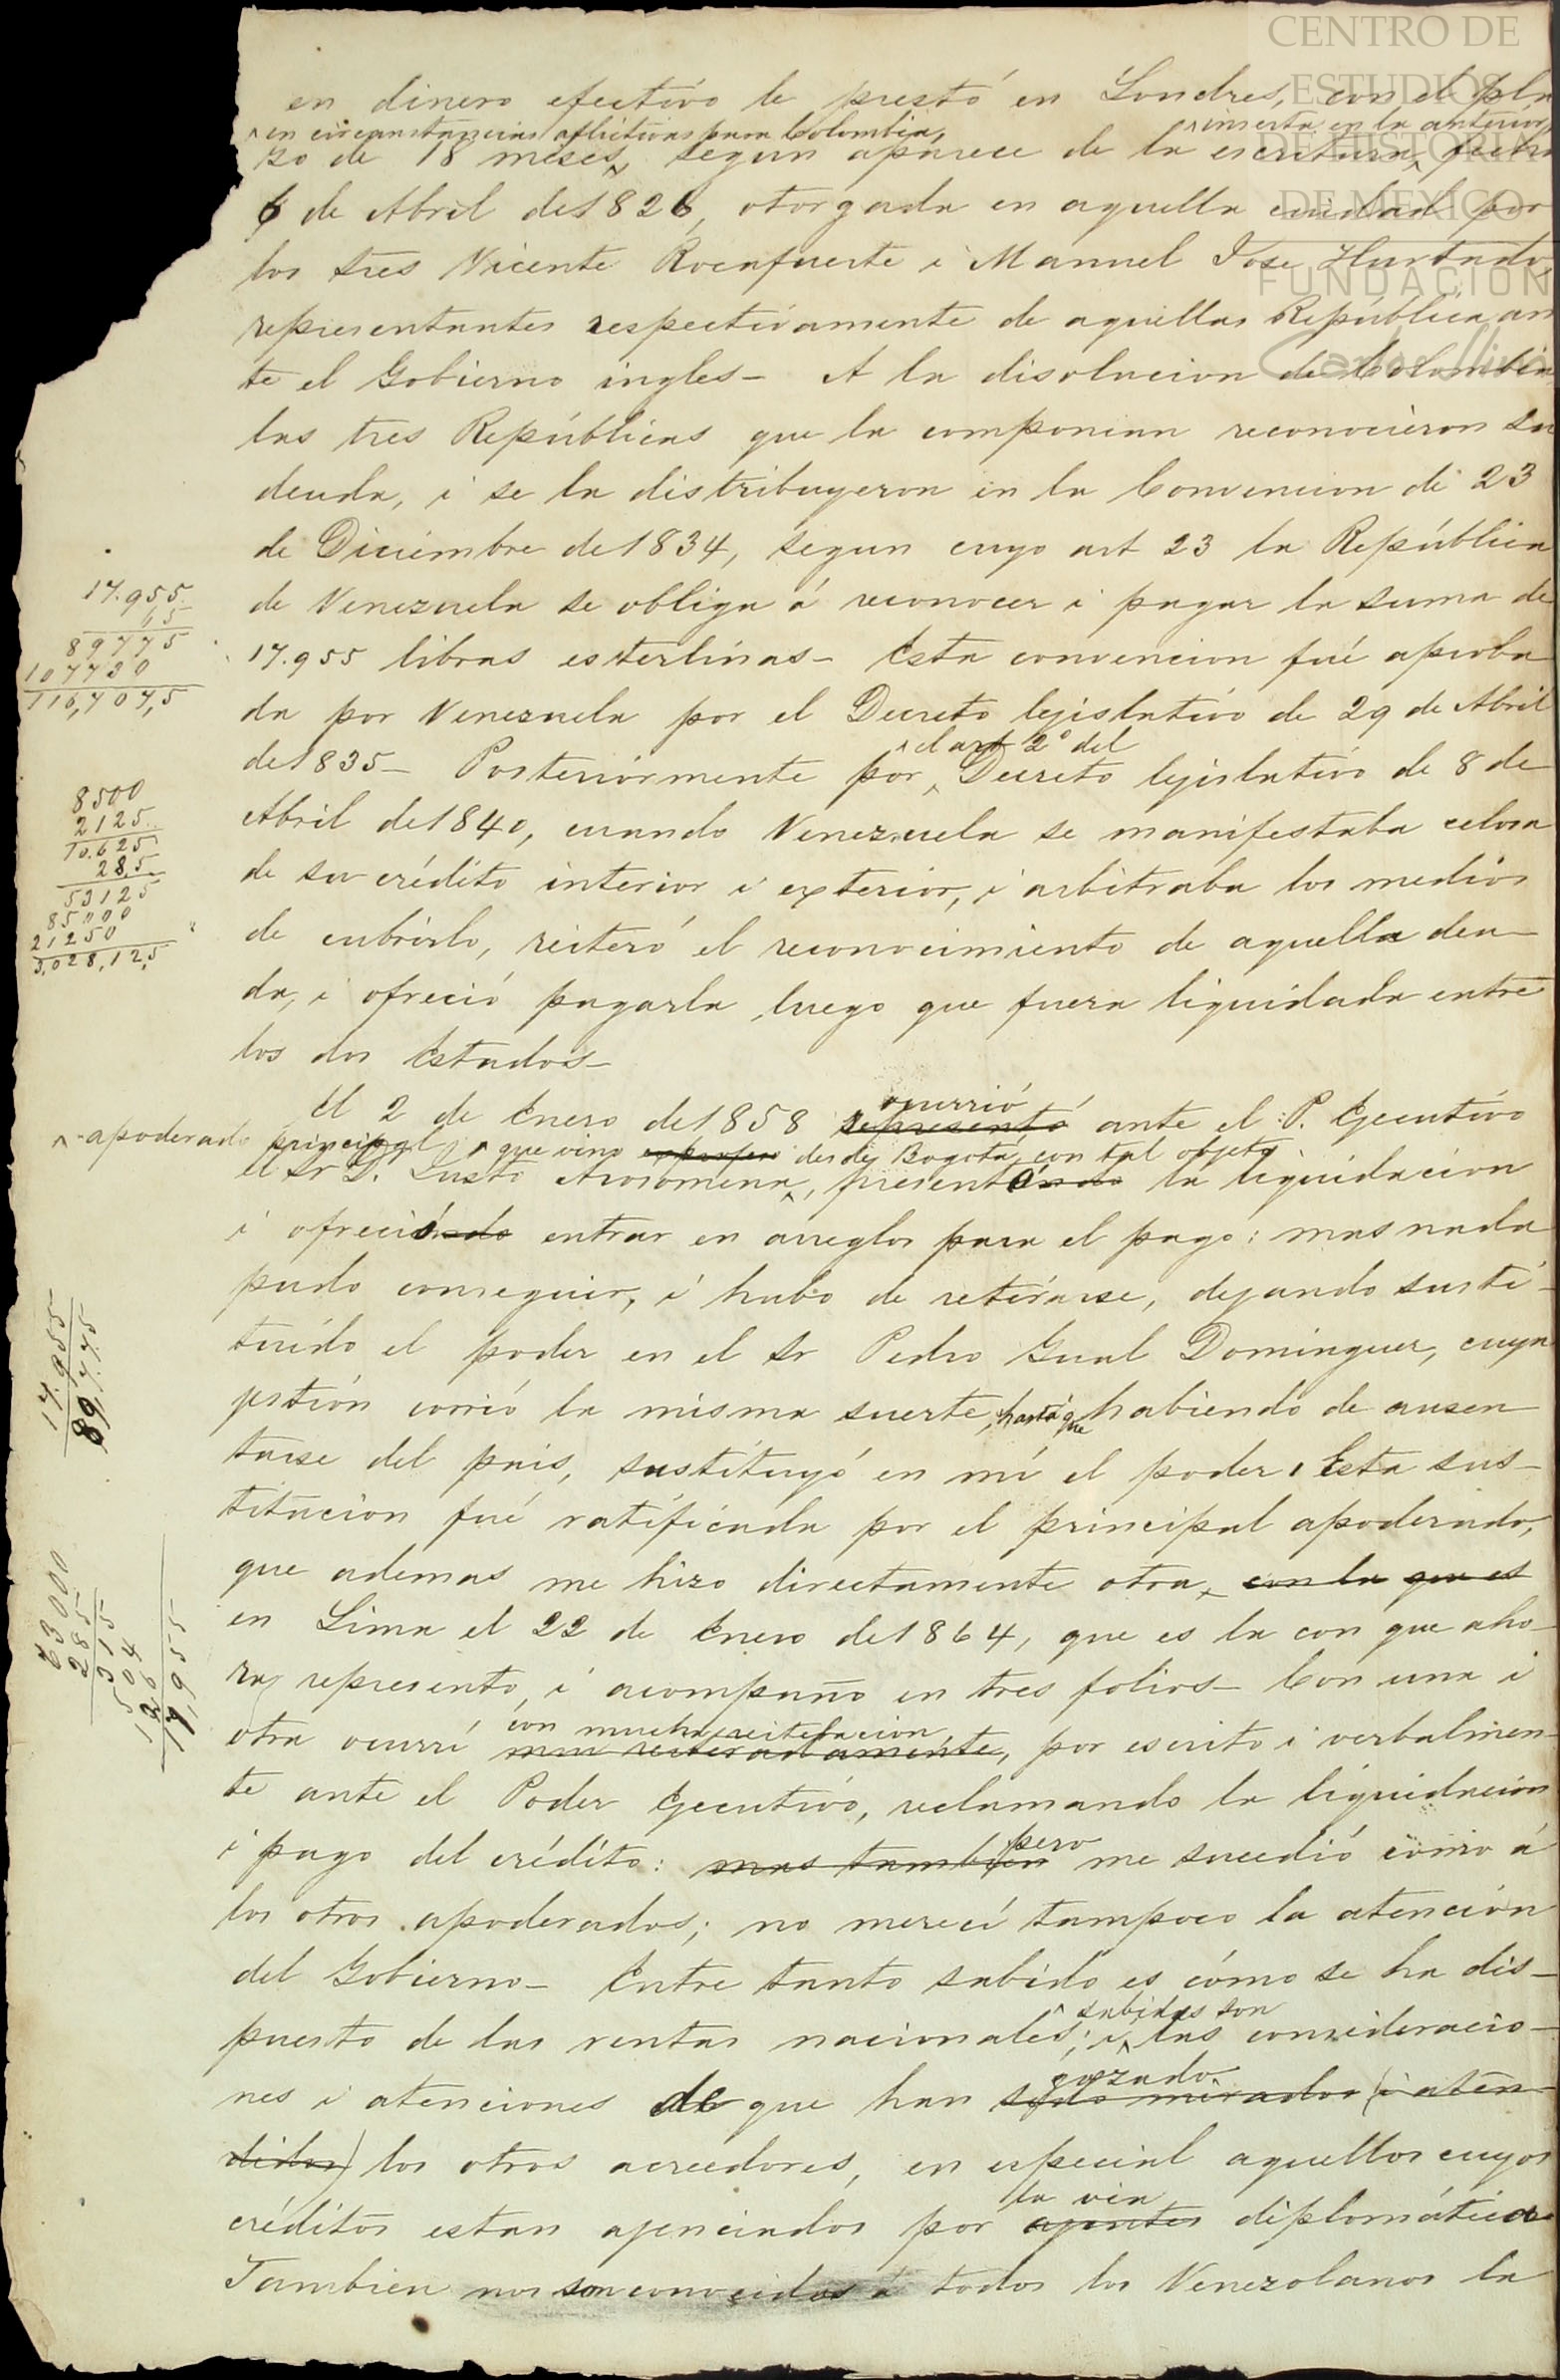 CENTRO DE
ESTUDIOS
DE HISTORIA
DE MEXICO
FUNDACIÓN
Carlos Slim
en dinero efectivo le prestó en Londres, con el pla
^ en circunstancias aflictivas para Colombia, ^ inserta en la anterior,
zo de 18 meses, segun aparece de la escritura, fecha
6 de Abril de 1826, otorgada en aquella ciudad por
los Sres Vicente Rocafuerte i Manuel Jose Hurtado,
representantes respectivamente de aquellas República an
te el Gobierno ingles – A la disolucion de Colombia
las tres Repúblicas que la componian reconocieron su
deuda, i se la distribuyeron en la Convencion de 23
de Diciembre de 1834, segun cuyo art 23 la República
de Venezuela se obliga á reconocer i pagar la suma de
17.955 libras esterlinas – Esta convencion fué aproba
da por Venezuela por el Decreto lejislativo de 29 de Abril
^ el art 2º del
de 1835 – Posteriormente por ^ Decreto lejislativo de 8 de
Abril de 1840, cuando Venezuela se manifestaba celosa
de su crédito interior i exterior, i arbitraba los medios
de cubrirlo, reiteró el reconocimiento de aquella deu–
da, i ofreció pagarla luego que fuera liquidada entre
los dos Estados –
ocurrió
El 2 de Enero de 1858 representó ante el P. Ejecutivo
^ apoderado principal ^ que vino desde Bogotá con tal objeto
el Sr D. Justo Arosomena ^, presentó la liquidacion
i ofreció entrar en arreglos para el pago: mas nada
pudo conseguir, i hubo de retirarse, dejando susti–
tuido el poder en el Sr Pedro Gual Dominguez, cuya
jestión corrió la misma suerte, hasta que habiendo de ausen
tarse del pais, sustituyó en mí el poder. Esta sus–
titucion fué ratificada por el principal apoderado,
que ademas me hizo directamente otra, con la que es
en Lima el 22 de Enero de 1864, que es la con que aho–
ra represento, i acompaño en tres folios – Con una i
con mucha reiteracion
otra ocurrí mui reiteradamente, por escrito i verbalmen–
te ante el Poder Ejecutivo, reclamando la liquidacion
pero
i pago del crédito: mas tambien me sucedió como á
los otros apoderados; no merecí tampoco la atención
del Gobierno – Entre tanto sabido es cómo se ha dis–
^ sabidas son
puesto de las rentas nacionales; i ^ las consideracio–
gozado
nes i atenciones de que han sido mirados (i aten–
didos) los otros acreedores, en especial aquellos cuyos
la via
créditos estan ajenciados por ajentes diplomática
Tambien nos son conocidas a todos los Venezolanos la
17.955
6,5
89775
107730
116,707,5
8500
2125
10.625
28,5
53125
85000
21250
3,028,12,5
17.955
5
89,775
63000
285
315
504
126
17,955